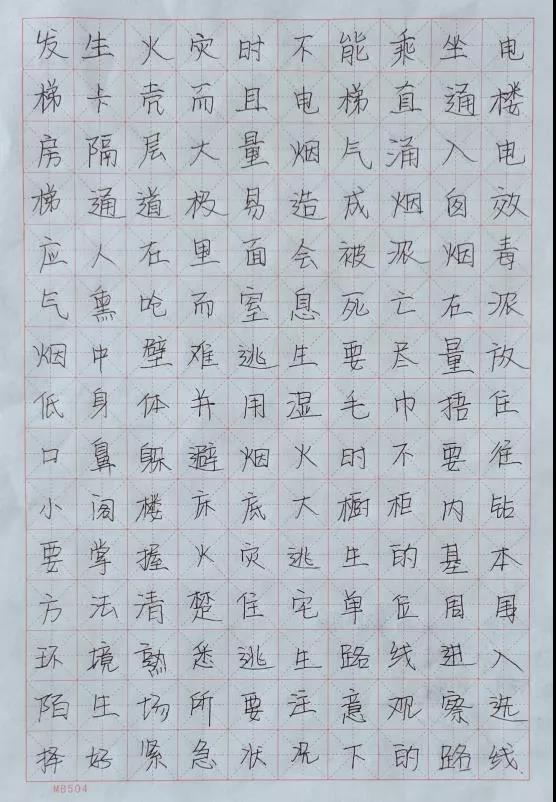 发生火灾时不能乘坐电
梯卡壳而且电梯直通楼
房隔层大量烟气涌入电
梯通道极易造成烟囱效
应人在里面会被浓烟毒
气熏呛而室息死亡在浓
烟中壁难逃生要尽量放
低身体并用湿毛巾捂住
口鼻躲避烟火时不要往
小阁楼床底大橱柜内钻
要掌握火灾逃生的基本
方法清楚住宅单位周围
环境熟悉逃生路线进入
陌生场所要注意观察选
择好紧急状况下的路线
MB504